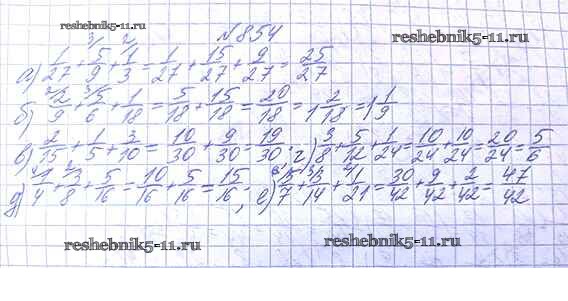 reshebnik5-11.ru
№854
reshebnik5-11.ru
а) 1/27 + 5/9 + 1/3 = 1/27 + 15/27 + 9/27 = 25/27
б) 2/9 + 5/6 + 1/18 = 5/18 + 15/18 = 20/18 = 1 2/18 = 1 1/9
в) 2/15 + 1/5 + 3/10 = 10/30 + 9/30 = 19/30; г) 3/8 + 5/12 + 1/24 = 10/24 + 10/24 = 20/24 = 5/6
д) 1/4 + 3/8 + 5/16 = 10/16 + 5/16 = 15/16; е) 5/7 + 3/14 + 1/21 = 30/42 + 9/42 + 2/42 = 47/42
reshebnik5-11.ru
reshebnik5-11.ru